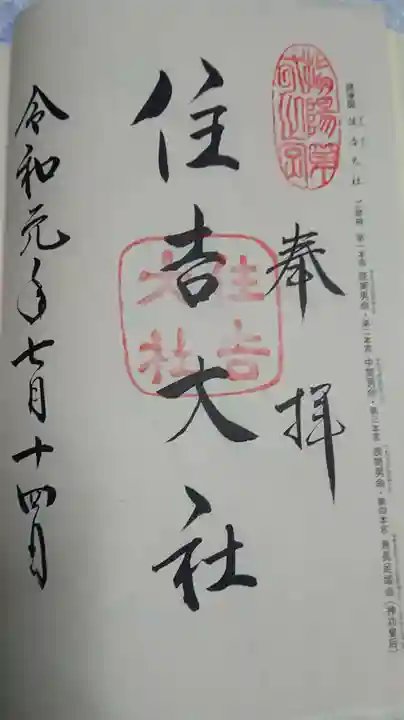 摂津国 住吉大社 ご祭神 第一本宮 底筒男命・第二本宮 中筒男命・第三本宮 表筒男命・第四本宮 息長足姫命(神功皇后)
奉拝
住吉大社
住吉
大社
令和元年七月十四日